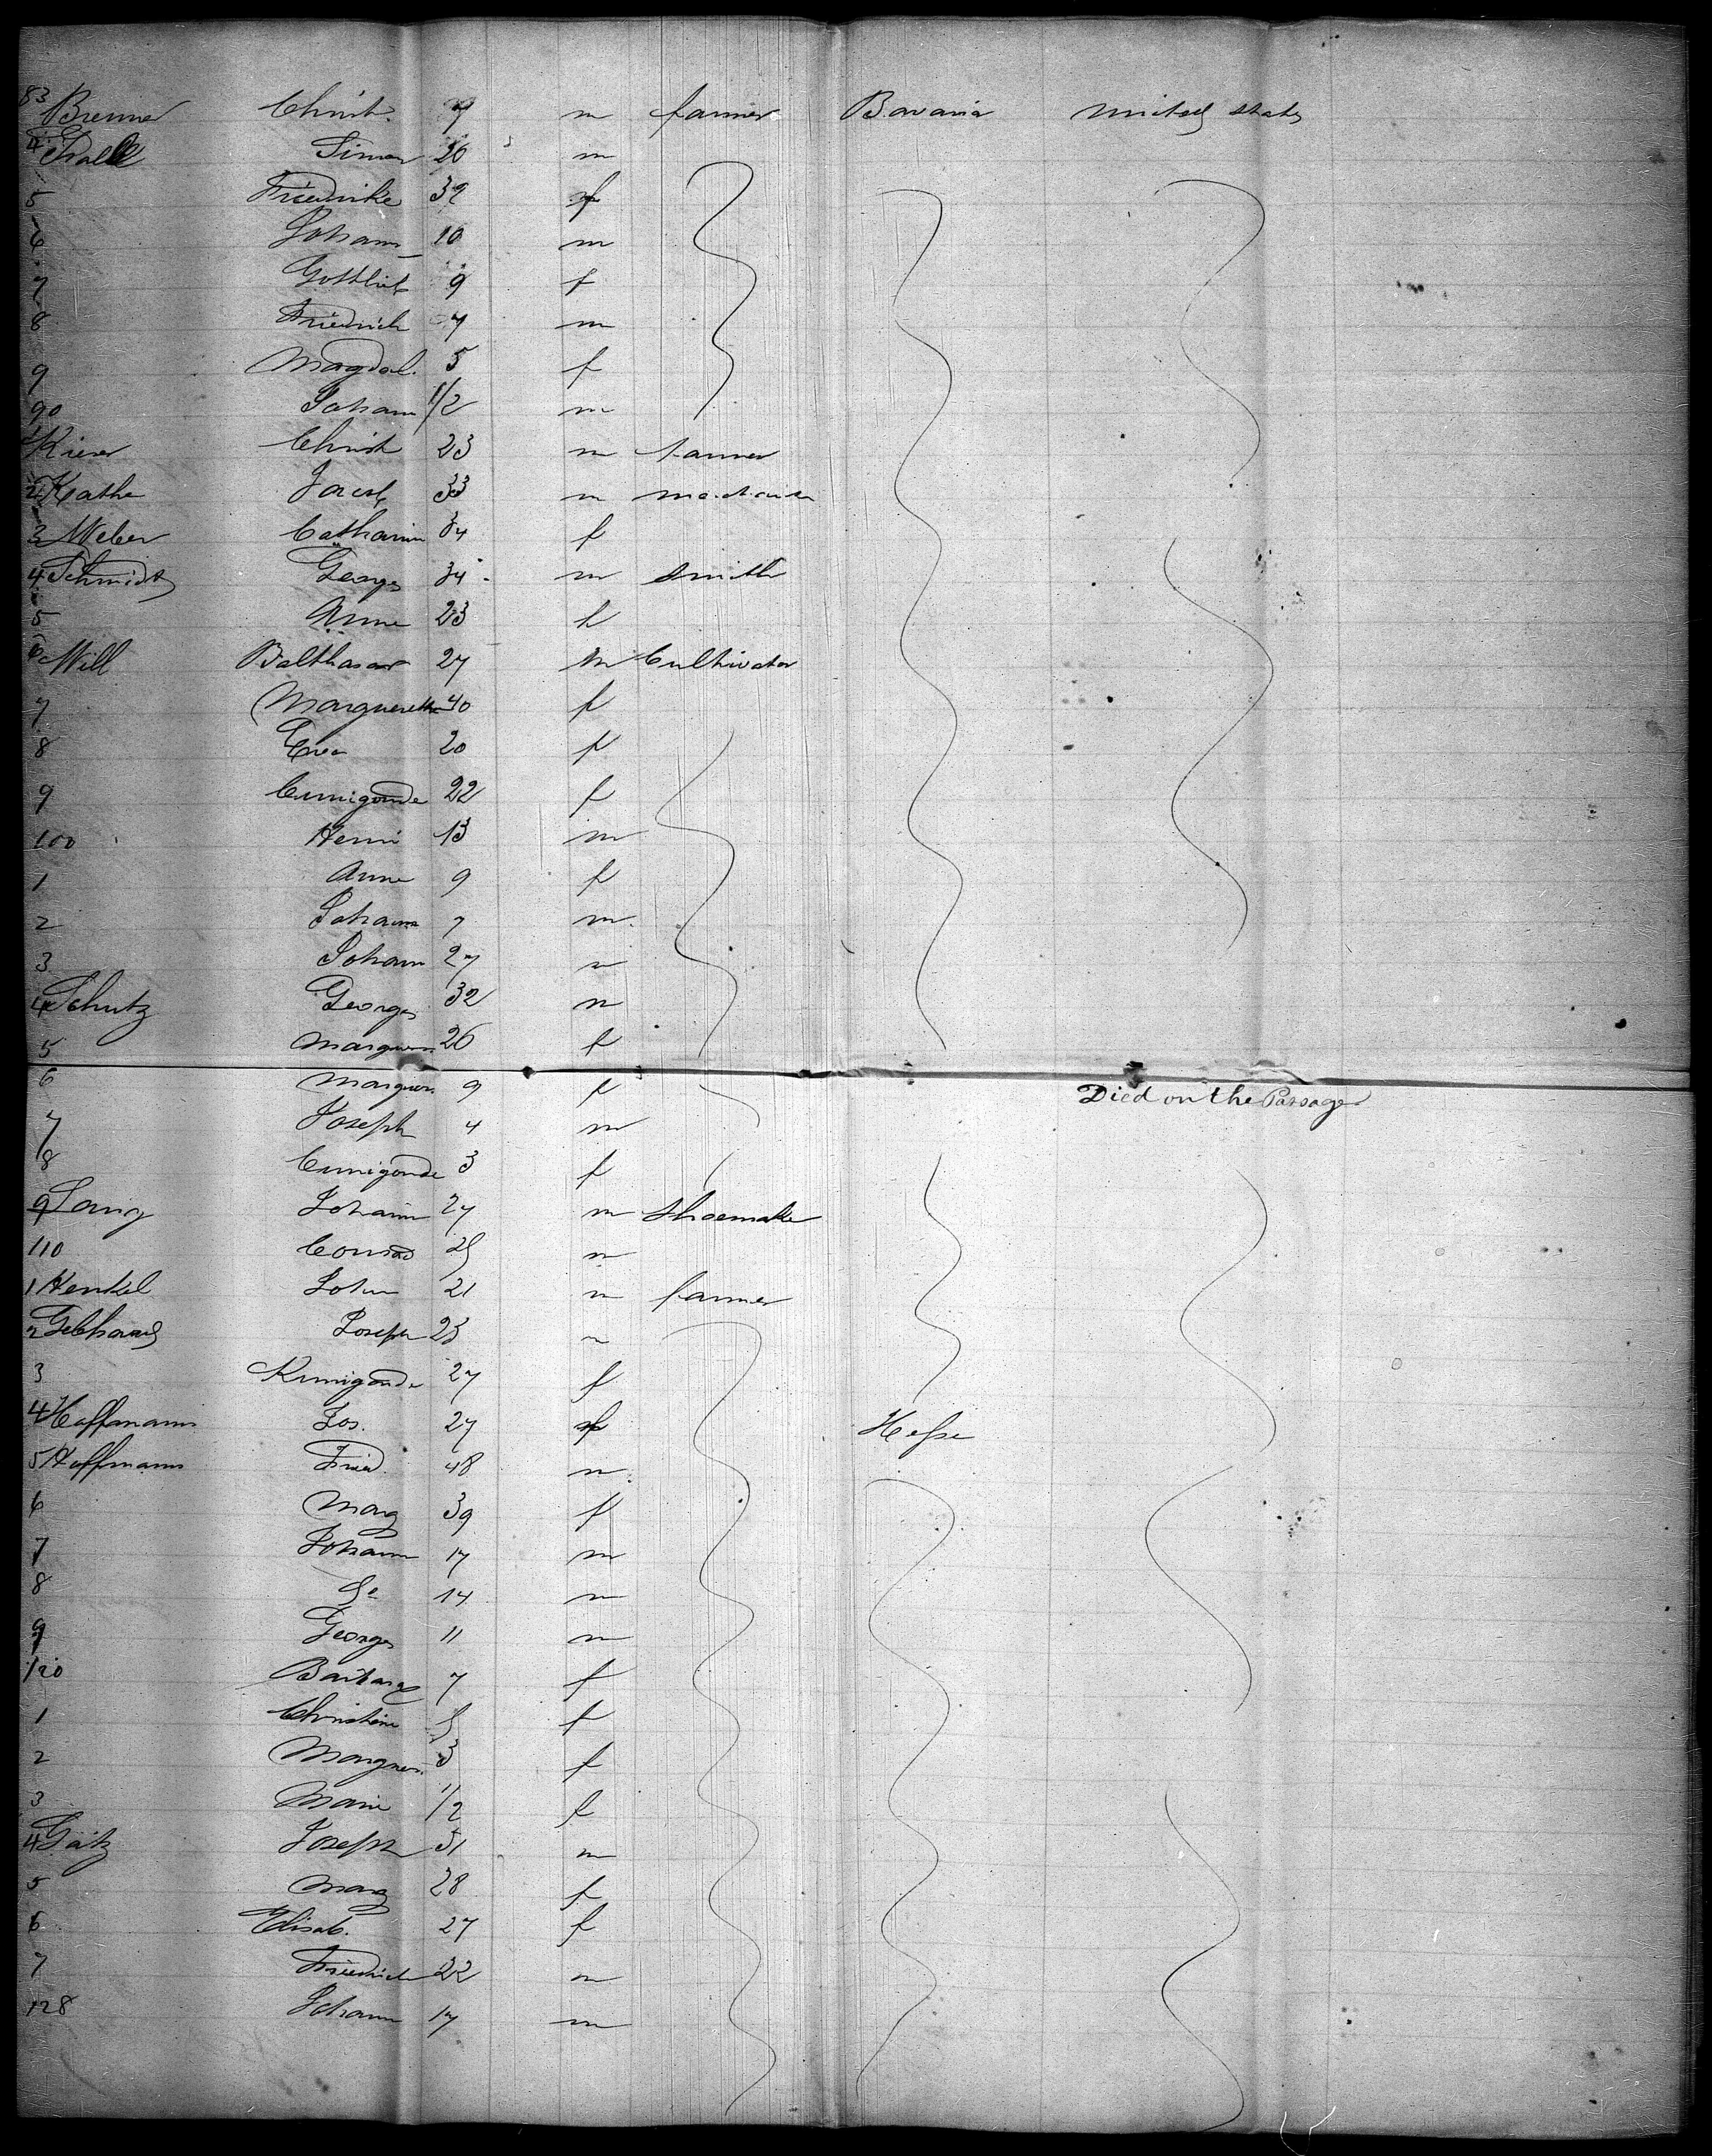 83 Brenner Christ. 9 m farmer Bavaria united states
4 Simon 26 m
5 Friedrike 32 f
6 Johann 10 m
7 Gottlieb 9 f
8 Friedrich 7 m
9 Magdal. 5 f
90 Johann 1/2 m
1 Christ 23 m
2 Kathe Jacob 33 m
3 Weber Catharine 34 f
4 Schmidt George 34 m smith
5 Anne 23 f
6 Will Balthasar 27 m Cultivator
7 Marguerethe 40 f
8 Eva 20 f
9 Cunigonde 22 f
100 Henri 13 m
1 Anne 9 f
2 Johann 7 m
3 Johann 27 m
4 Schutz Georges 32 m
5 Marguer. 26 f
6 Marguer. 9 f Died on the Passage
7 Joseph 4 m
8 Cunigonde 3 f
9 Johann 27 m shoemaker
110 Conrad 25 m
1 Henkel John 21 m farmer
2 Gebhard Joseph 23 m
3 Kunigonde 27 f
4 Hoffmann Jos. 27 f Hesse
5 Hoffmann Fried. 48 m
6 Marg 39 f
7 Johann 17 m
8 14 m
9 Georges 11 m
120 Barbara 7 f
1 Christine 5 f
2 Marguer. 3 f
3 Marie 1/2 f
4 Götz Joseph 31 m
5 Marg 28 f
6 Elisab. 27 f
7 Friedrich 22 m
128 Johann 17 m